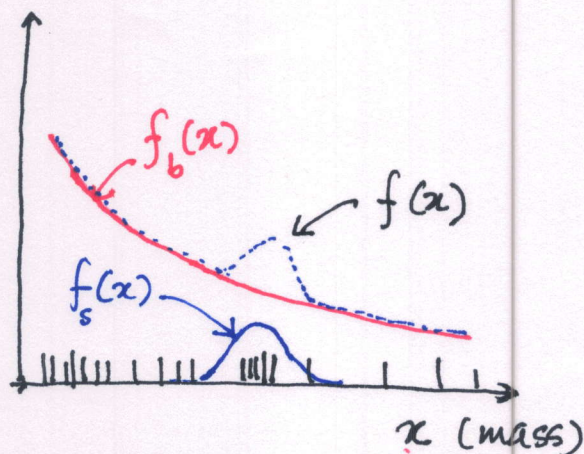 f_b(x)
f(x)
f_s(x)
x (mass)